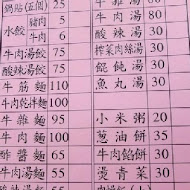 鍋貼(五個) 25
水餃 豬肉 5
牛肉 6
牛肉湯餃 75
酸辣湯餃 75
牛筋麵 110
牛肉乾拌麵 100
牛雜麵 95
牛肉麵 100
酢醬麵 65
酸辣湯麵 55
牛雜湯 80
牛肉湯 30
酸辣湯 30
榨菜肉絲湯 30
餛飩湯 30
魚丸湯 30
小米粥 20
蔥油餅 35
牛肉餡餅 30
燙青菜 30